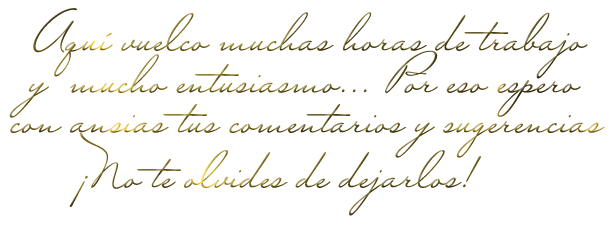 Aquí vuelco muchas horas de trabajo
y mucho entusiasmo... Por eso espero
con ansias tus comentarios y sugerencias
¡No te olvides de dejarlos!